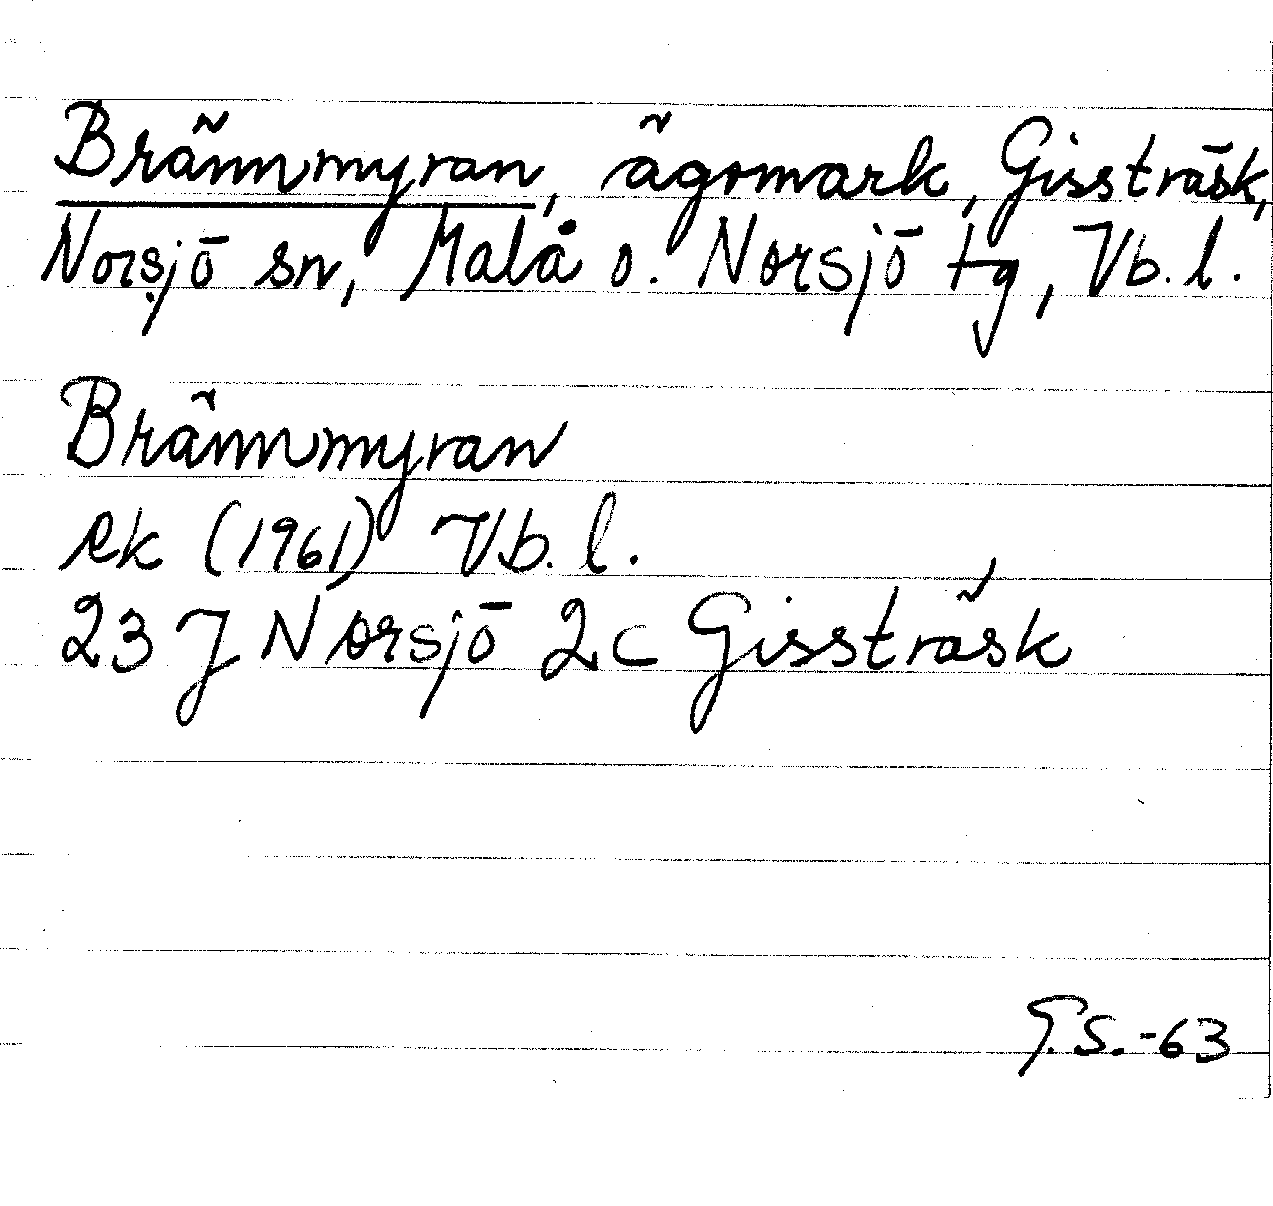 Brännmyran, ägomark, Gissträsk,
Norsjö sn, Malå o. Norsjö tg, Vb. l.
Brännmyran
ek (1961) Vb. l.
23 J Norsjö 2c Gissträsk
G.S.-63